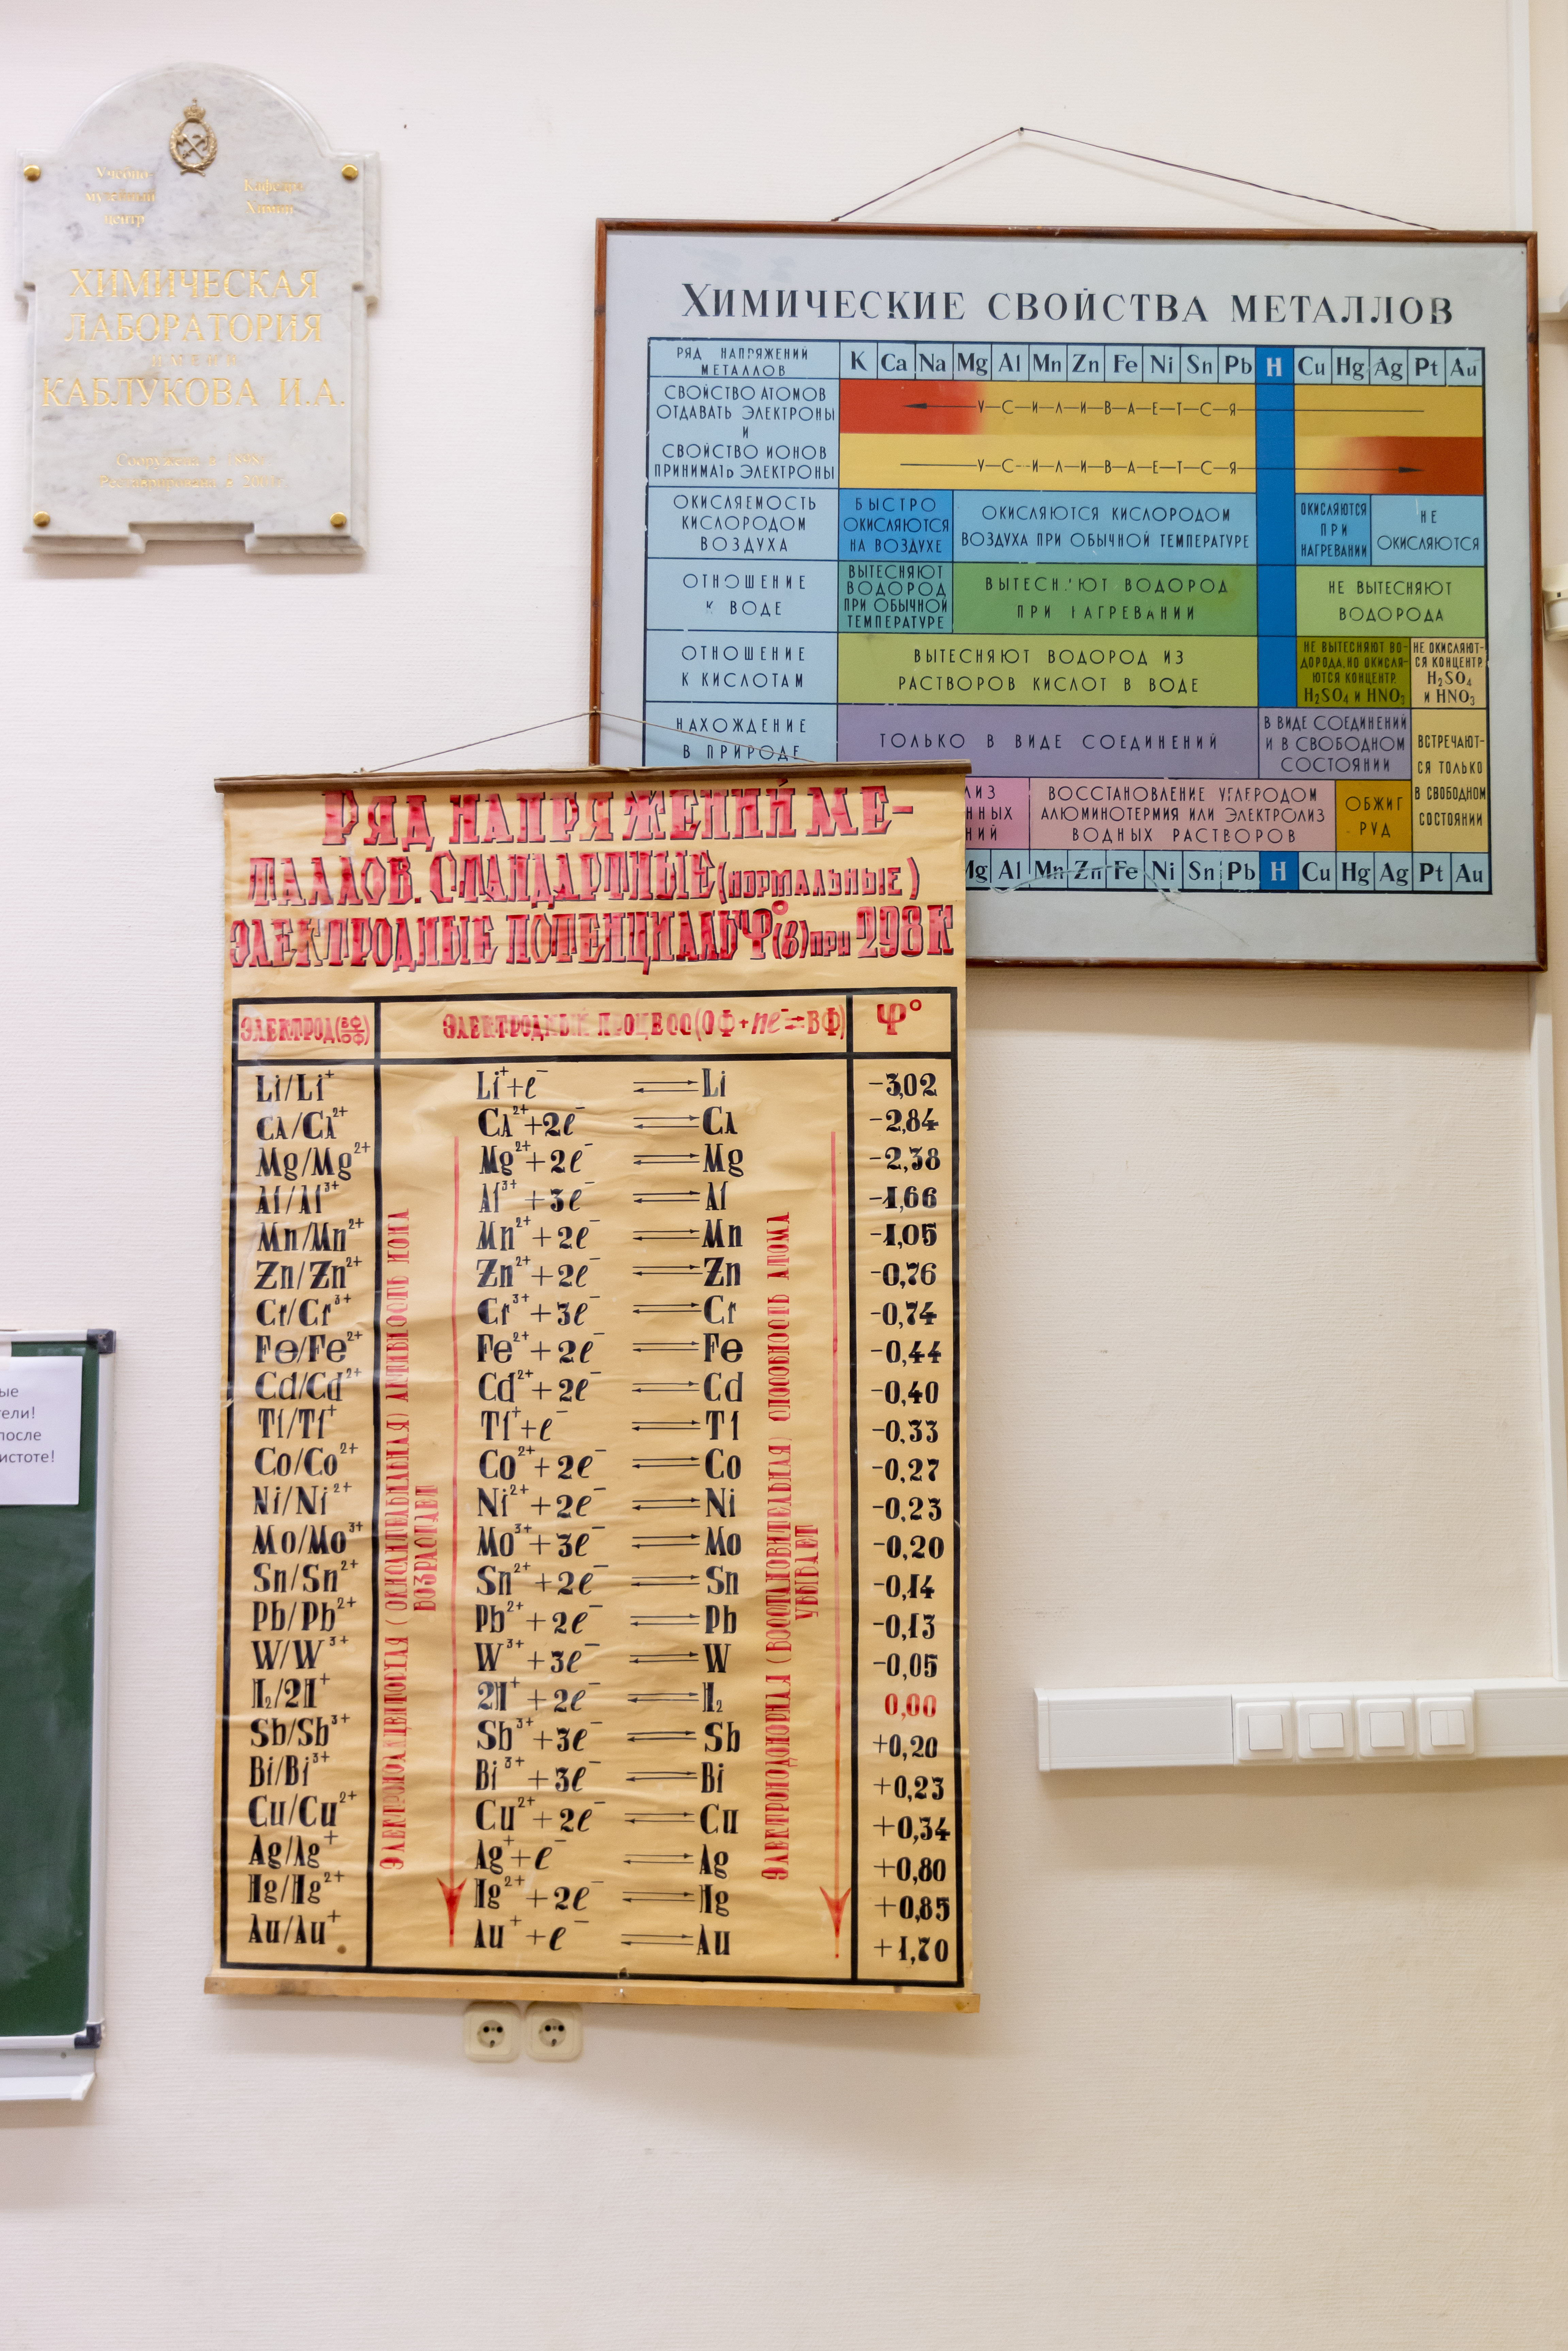 Учебно-
музейный
центр
Кафедра
Химии
ХИМИЧЕСКАЯ
ЛАБОРАТОРИЯ
ИМЕНИ
КАБЛУКОВА И.А.
Сооружена в
Реставрирована в
ХИМИЧЕСКИЕ СВОЙСТВА МЕТАЛЛОВ
РЯД НАПРЯЖЕНИЙ
МЕТАЛЛОВ
K Ca Na Mg Al Mn Zn Fe Ni Sn Pb H Cu Hg Ag Pt Au
СВОЙСТВО АТОМОВ
ОТДАВАТЬ ЭЛЕКТРОНЫ
И
СВОЙСТВО ИОНОВ
ПРИНИМАТЬ ЭЛЕКТРОНЫ
У—С—И—Л—И—В—А—Е—Т—С—Я
У—С—И—Л—И—В—А—Е—Т—С—Я
ОКИСЛЯЕМОСТЬ
КИСЛОРОДОМ
ВОЗДУХА
БЫСТРО
ОКИСЛЯЮТСЯ
НА ВОЗДУХЕ
ОКИСЛЯЮТСЯ КИСЛОРОДОМ
ВОЗДУХА ПРИ ОБЫЧНОЙ ТЕМПЕРАТУРЕ
ОКИСЛЯЮТСЯ
ПРИ
НАГРЕВАНИИ
НЕ
ОКИСЛЯЮТСЯ
ОТНОШЕНИЕ
К ВОДЕ
ВЫТЕСНЯЮТ
ВОДОРОД
ПРИ ОБЫЧНОЙ
ТЕМПЕРАТУРЕ
ВЫТЕСНЯЮТ ВОДОРОД
ПРИ НАГРЕВАНИИ
НЕ ВЫТЕСНЯЮТ
ВОДОРОДА
ОТНОШЕНИЕ
К КИСЛОТАМ
ВЫТЕСНЯЮТ ВОДОРОД ИЗ
РАСТВОРОВ КИСЛОТ В ВОДЕ
НЕ ВЫТЕСНЯЮТ ВО-
ДОРОДА, НО ОКИСЛЯ-
ЮТСЯ КОНЦЕНТР.
H₂SO₄ И HNO₃
НЕ ОКИСЛЯЮТ-
СЯ КОНЦЕНТР.
H₂SO₄
И HNO₃
НАХОЖДЕНИЕ
В ПРИРОДЕ
ТОЛЬКО В ВИДЕ СОЕДИНЕНИЙ
В ВИДЕ СОЕДИНЕНИЙ
И В СВОБОДНОМ
СОСТОЯНИИ
ВСТРЕЧАЮТ-
СЯ ТОЛЬКО
В СВОБОДНОМ
СОСТОЯНИИ
ЛИЗ
ННЫХ
НИЙ
ВОССТАНОВЛЕНИЕ УГЛЕРОДОМ
АЛЮМИНОТЕРМИЯ ИЛИ ЭЛЕКТРОЛИЗ
ВОДНЫХ РАСТВОРОВ
ОБЖИГ
РУД
Mg Al Mn Zn Fe Ni Sn Pb H Cu Hg Ag Pt Au
РЯД НАПРЯЖЕНИЙ МЕ-
ТАЛЛОВ. СТАНДАРТНЫЕ (НОРМАЛЬНЫЕ)
ЭЛЕКТРОДНЫЕ ПОТЕНЦИАЛЫ φ° (в) при 298 К
ЭЛЕКТРОД (ВФ/ОФ) ЭЛЕКТРОДНЫЙ ПРОЦЕСС (ОФ+ne⁻⇄ВФ) φ°
Li/Li⁺ Li⁺+e⁻ ⇄ Li −3,02
Ca/Ca²⁺ Ca²⁺+2e⁻ ⇄ Ca −2,84
Mg/Mg²⁺ Mg²⁺+2e⁻ ⇄ Mg −2,38
Al/Al³⁺ Al³⁺+3e⁻ ⇄ Al −1,66
Mn/Mn²⁺ Mn²⁺+2e⁻ ⇄ Mn −1,05
Zn/Zn²⁺ Zn²⁺+2e⁻ ⇄ Zn −0,76
Cr/Cr³⁺ Cr³⁺+3e⁻ ⇄ Cr −0,74
Fe/Fe²⁺ Fe²⁺+2e⁻ ⇄ Fe −0,44
Cd/Cd²⁺ Cd²⁺+2e⁻ ⇄ Cd −0,40
Tl/Tl⁺ Tl⁺+e⁻ ⇄ Tl −0,33
Co/Co²⁺ Co²⁺+2e⁻ ⇄ Co −0,27
Ni/Ni²⁺ Ni²⁺+2e⁻ ⇄ Ni −0,23
Mo/Mo³⁺ Mo³⁺+3e⁻ ⇄ Mo −0,20
Sn/Sn²⁺ Sn²⁺+2e⁻ ⇄ Sn −0,14
Pb/Pb²⁺ Pb²⁺+2e⁻ ⇄ Pb −0,13
W/W³⁺ W³⁺+3e⁻ ⇄ W −0,05
H₂/2H⁺ 2H⁺+2e⁻ ⇄ H₂ 0,00
Sb/Sb³⁺ Sb³⁺+3e⁻ ⇄ Sb +0,20
Bi/Bi³⁺ Bi³⁺+3e⁻ ⇄ Bi +0,23
Cu/Cu²⁺ Cu²⁺+2e⁻ ⇄ Cu +0,34
Ag/Ag⁺ Ag⁺+e⁻ ⇄ Ag +0,80
Hg/Hg²⁺ Hg²⁺+2e⁻ ⇄ Hg +0,85
Au/Au⁺ Au⁺+e⁻ ⇄ Au +1,70
ЭЛЕКТРОНОАКЦЕПТОРНАЯ (ОКИСЛИТЕЛЬНАЯ) АКТИВНОСТЬ ИОНА
ВОЗРАСТАЕТ
ЭЛЕКТРОНОДОНОРНАЯ (ВОССТАНОВИТЕЛЬНАЯ) СПОСОБНОСТЬ АТОМА
УБЫВАЕТ
ые
ели!
после
истоте!